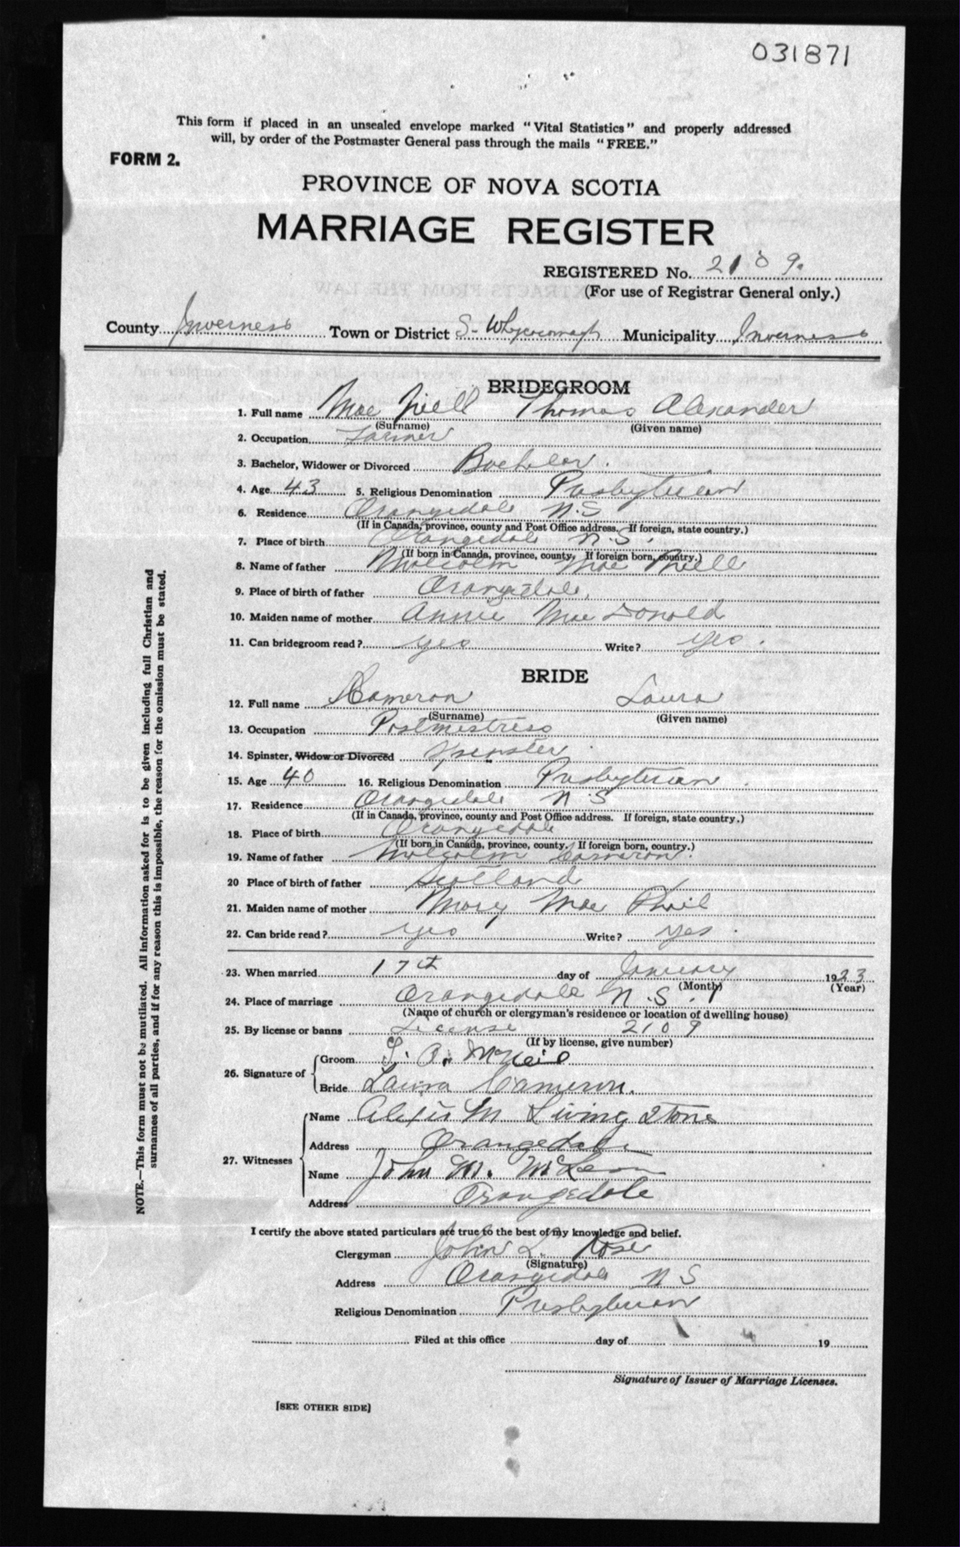 031871
This form if placed in an unsealed envelope marked "Vital Statistics" and properly addressed
will, by order of the Postmaster General pass through the mails "FREE."
FORM 2.
PROVINCE OF NOVA SCOTIA
MARRIAGE REGISTER
REGISTERED No. 2109.
(For use of Registrar General only.)
County Inverness Town or District S- Whycocomagh Municipality Inverness
BRIDEGROOM
1. Full name Mac Niell Thomas Alexander
(Surname) (Given name)
2. Occupation Farmer
3. Bachelor, Widower or Divorced Bachelor.
4. Age 43 5. Religious Denomination Presbyterian
6. Residence Orangedale N.S
(If in Canada, province, county and Post Office address. If foreign, state country.)
7. Place of birth Orangedale N.S.
(If born in Canada, province, county. If foreign born, country.)
8. Name of father Malcolm Mac Niell
9. Place of birth of father Orangedale.
10. Maiden name of mother Annie Mac Donald
11. Can bridegroom read? yes Write? yes.
BRIDE
12. Full name Cameron Laura
(Surname) (Given name)
13. Occupation Postmistress
14. Spinster, Widow or Divorced Spinster
15. Age 40 16. Religious Denomination Presbyterian
17. Residence Orangedale N S
(If in Canada, province, county and Post Office address. If foreign, state country.)
18. Place of birth Orangedale
(If born in Canada, province, county. If foreign born, country.)
19. Name of father Malcolm Cameron.
20 Place of birth of father Scotland
21. Maiden name of mother Mary Mac Phail
22. Can bride read? yes Write? yes.
23. When married 17th day of January 1923
(Month) (Year)
24. Place of marriage Orangedale N.S.
(Name of church or clergyman's residence or location of dwelling house)
25. By license or banns License 2109
(If by license, give number)
26. Signature of Groom T. A. McNeil
Bride Laura Cameron.
27. Witnesses Name M Livingstone
Address Orangedale
Name John M. McLean
Address Orangedale
I certify the above stated particulars are true to the best of my knowledge and belief.
Clergyman John L. Rose
(Signature)
Address Orangedale N S
Religious Denomination Presbyterian
Filed at this office day of 19
Signature of Issuer of Marriage Licenses.
[SEE OTHER SIDE]
NOTE.-This form must not be mutilated. All information asked for is to be given including full Christian and
surnames of all parties, and if for any reason this is impossible, the reason for the omission must be stated.